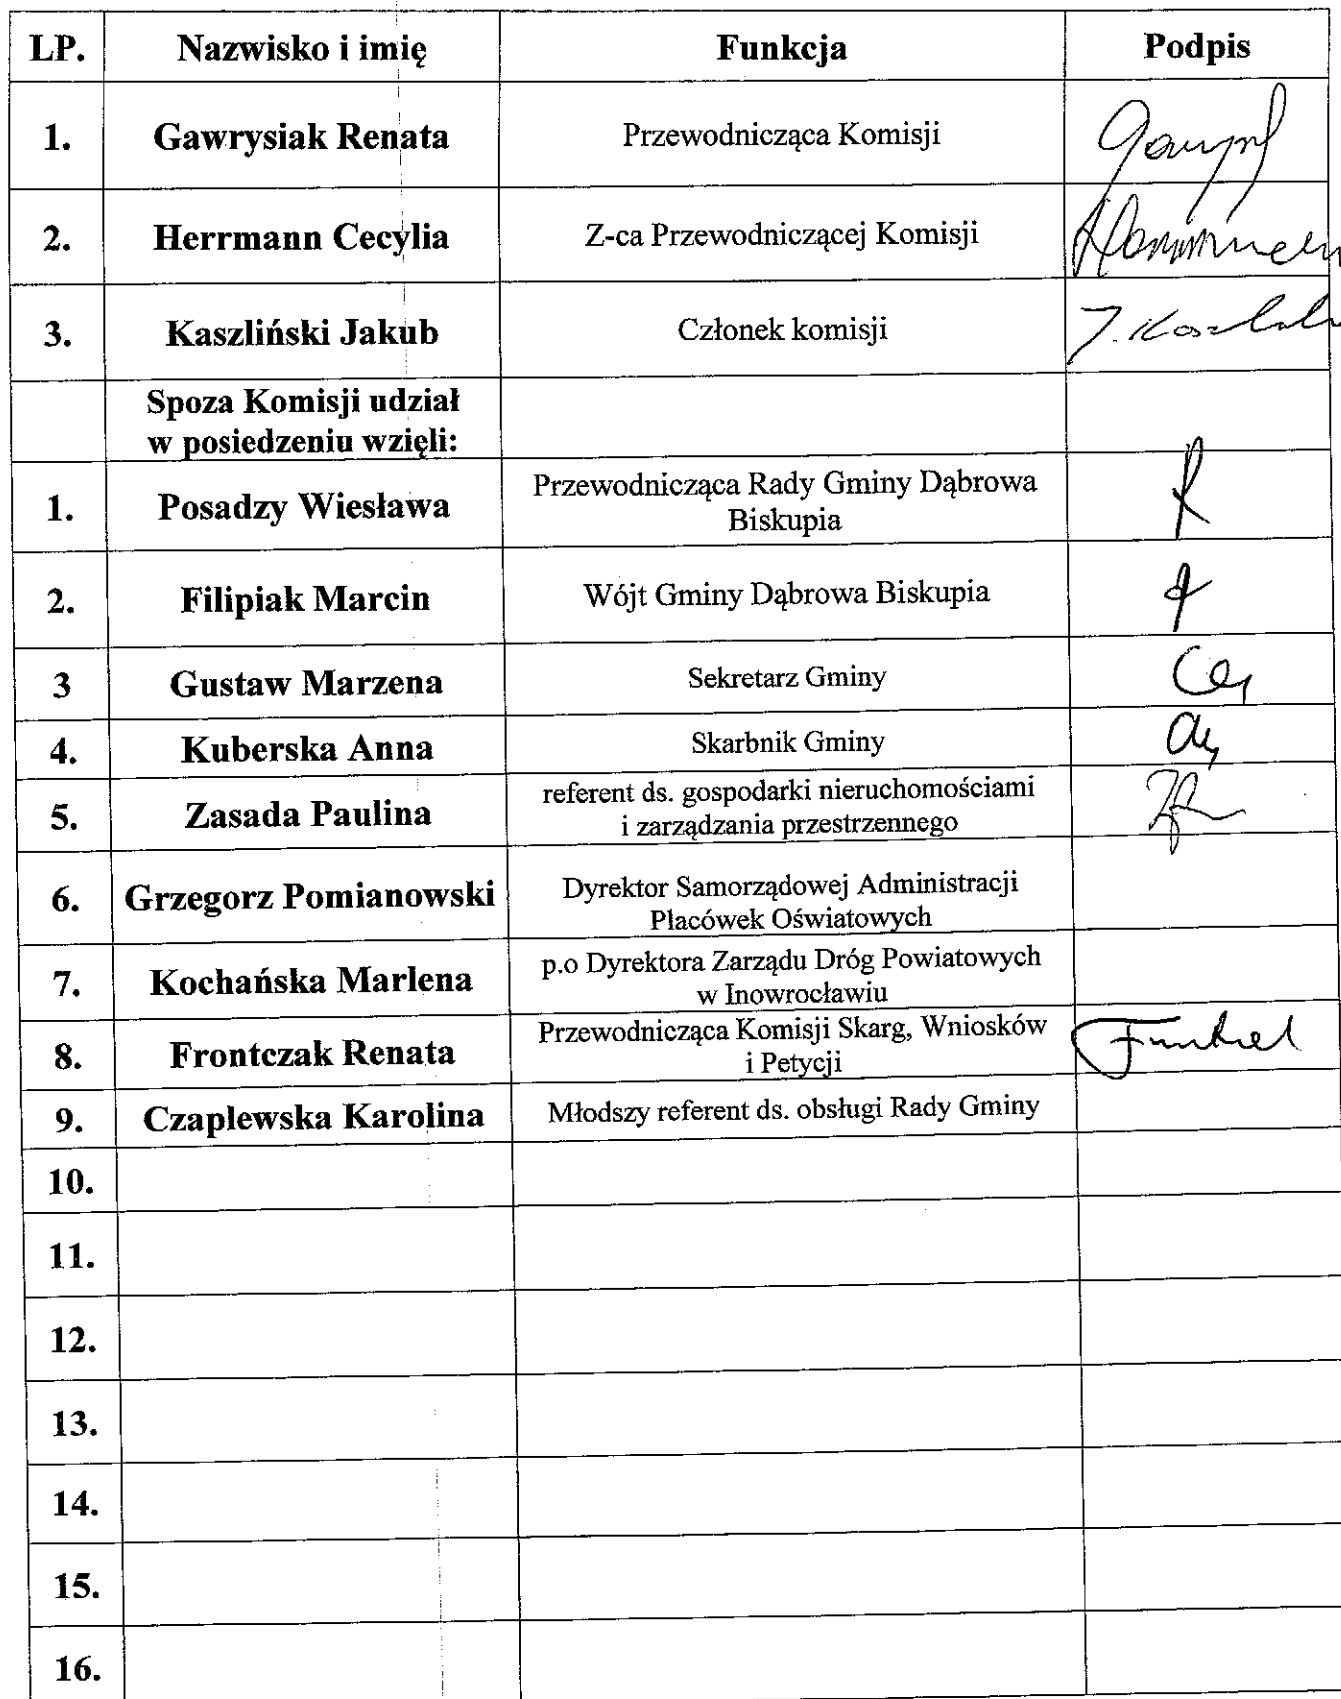 LP. Nazwisko i imię Funkcja Podpis
1. Gawrysiak Renata Przewodnicząca Komisji
2. Herrmann Cecylia Z-ca Przewodniczącej Komisji
3. Kaszliński Jakub Członek komisji
Spoza Komisji udział
w posiedzeniu wzięli:
1. Posadzy Wiesława Przewodnicząca Rady Gminy Dąbrowa
Biskupia
2. Filipiak Marcin Wójt Gminy Dąbrowa Biskupia
3 Gustaw Marzena Sekretarz Gminy
4. Kuberska Anna Skarbnik Gminy
5. Zasada Paulina referent ds. gospodarki nieruchomościami
i zarządzania przestrzennego
6. Grzegorz Pomianowski Dyrektor Samorządowej Administracji
Placówek Oświatowych
7. Kochańska Marlena p.o Dyrektora Zarządu Dróg Powiatowych
w Inowrocławiu
8. Frontczak Renata Przewodnicząca Komisji Skarg, Wniosków
i Petycji
9. Czaplewska Karolina Młodszy referent ds. obsługi Rady Gminy
10.
11.
12.
13.
14.
15.
16.